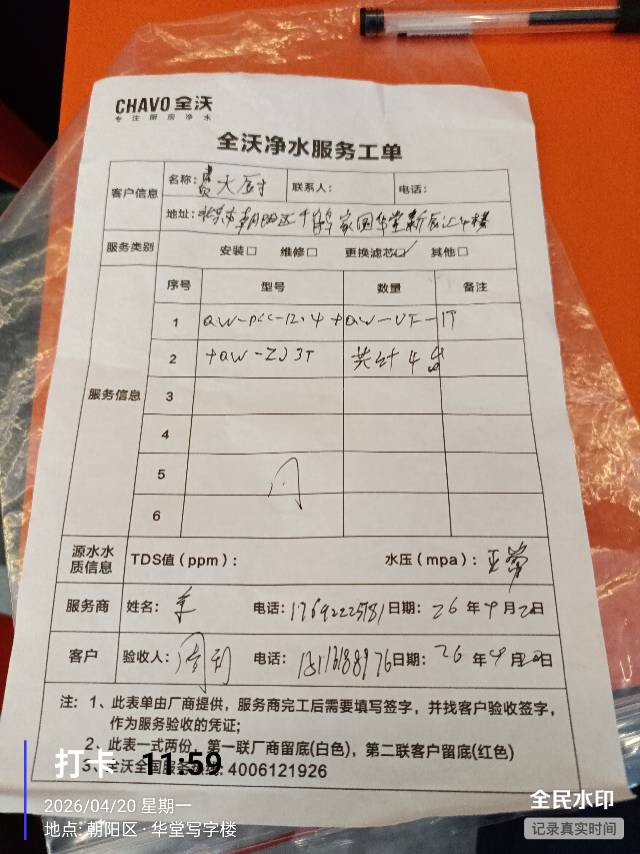 CHAVO 全沃
专 注 厨 房 净 水
全沃净水服务工单
客户信息 名称：费大厨 联系人： 电话：
地址：北京市朝阳区千鹤家园华堂新辰汇4楼
服务类别 安装□ 维修□ 更换滤芯☑ 其他□
服务信息 序号 型号 数量 备注
1 QW-PCC-12.4+QW-UF-1T
2 +QW-ZJ3T 共计4支
3
4
5
6
源水水质信息 TDS值（ppm）： 水压（mpa）：正常
服务商 姓名： 电话： 日期：26年4月20日
客户 验收人： 电话： 日期：26年4月20日
注：1、此表单由厂商提供，服务商完工后需要填写签字，并找客户验收签字，
作为服务验收的凭证；
2、此表一式两份，第一联厂商留底(白色)，第二联客户留底(红色)
3、全沃全国服务热线: 4006121926
打卡 11:59
2026/04/20 星期一
地点: 朝阳区 · 华堂写字楼
全民水印
记录真实时间